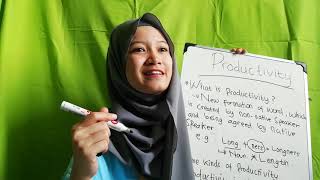 Productivity
* What is productivity?
↳ New formation of word, which
is created by non-native speaker
and being agreed by native
speaker
e.g Long + ness = Longness
↳ Noun * Length
kinds of Productivity